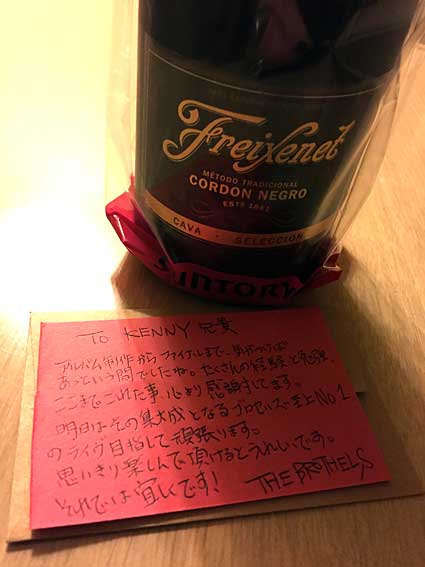 Freixenet
MÉTODO TRADICIONAL
CORDON NEGRO
ESTD 1861
CAVA · SELECCION
SUNTORY
TO KENNY 兄貴
アルバム制作からファイナルまで、気がつけば
あっという間でしたね。たくさんの経験と勉強、
ここまでこれた事、心より感謝してます。
明日はその集大成となるブロセルズ史上No1
のライヴ目指して頑張ります。
思いきり楽しんで頂けるとうれしいです。
それでは宜しくです! THE BROTHELS